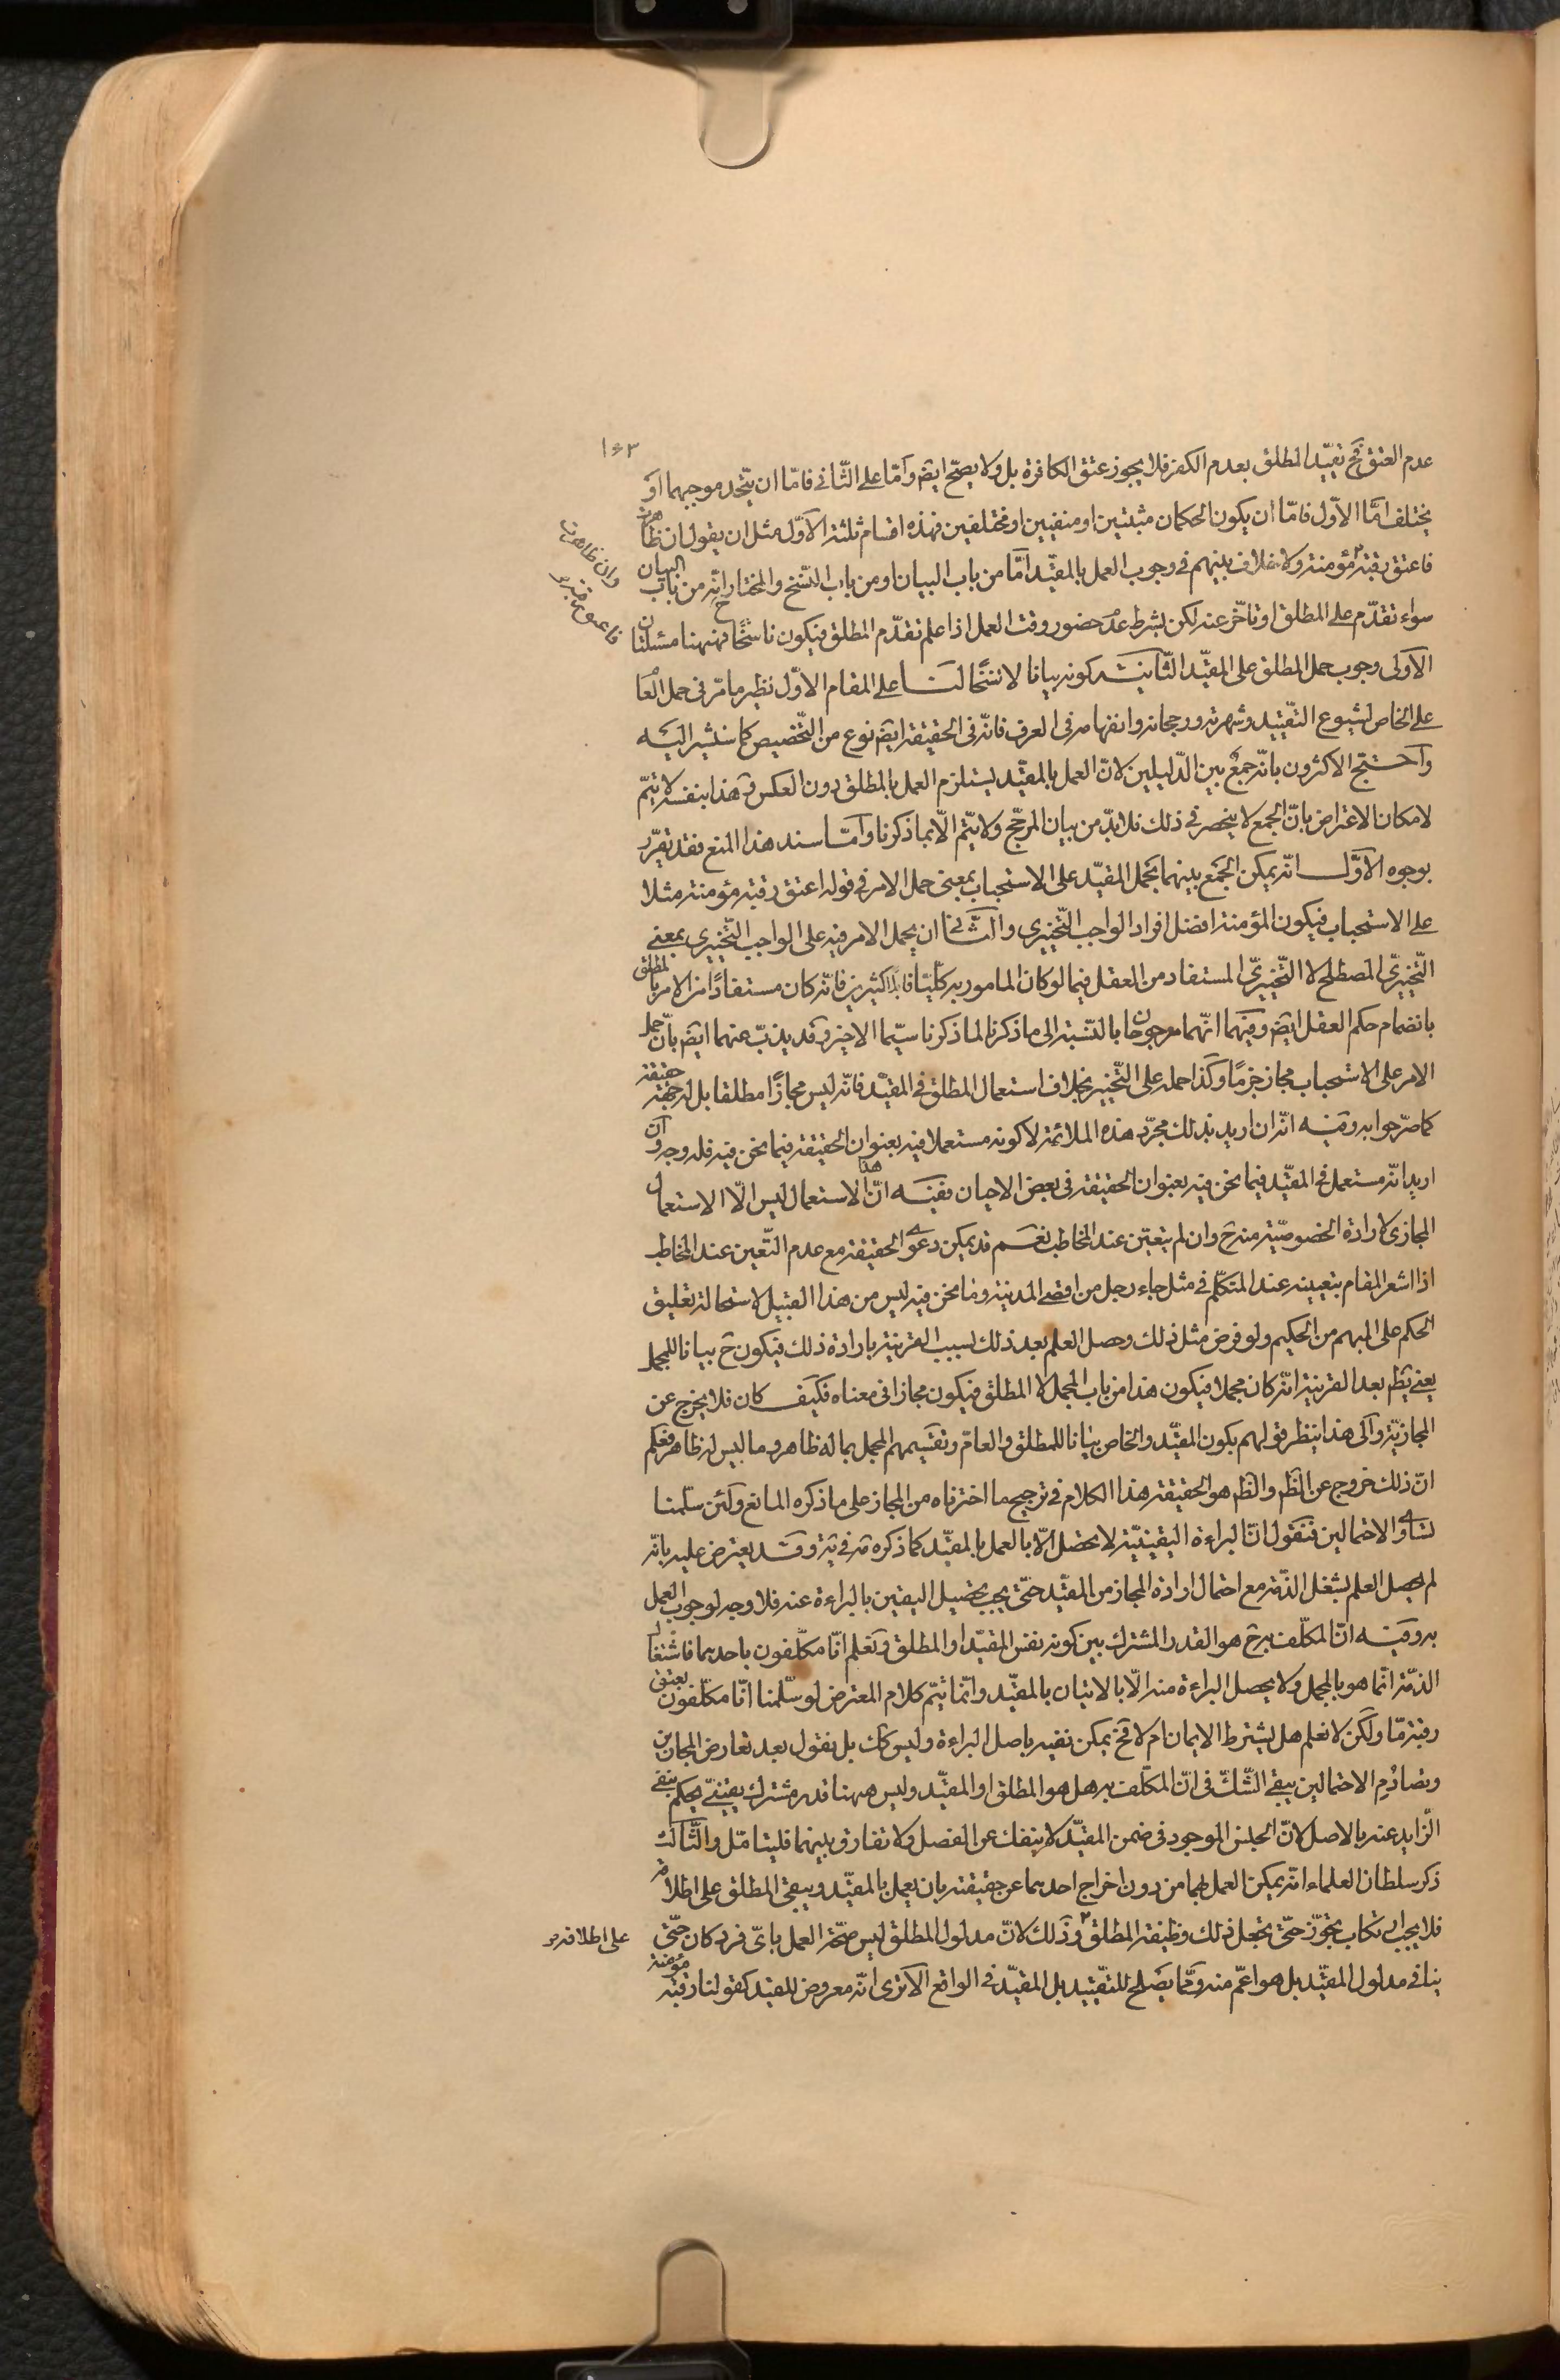 ١٤٣
عدم العتق فح تقيّد المطلق بعدم الكفر فلا يجوز عتق الكافرة بل ولا يصحّ ايضا وامّا على الثّانى فامّا ان يتّحد موجبهما او
يختلف امّا الاوّل فامّا ان يكون الحكمان مثبتين او منفيين او مختلفين فهذه اقسام ثلثة الاوّل مثل ان يقول ان ظاهرت
فاعتق رقبة مؤمنة ولا خلاف بينهم فى وجوب العمل بالمقيّد امّا من باب البيان او من باب النّسخ والمختار انّه من باب البيان
وان ظاهرت فاعتق رقبة
سواء تقدّم على المطلق او تاخّر عنه لكن بشرط عدم حضور وقت العمل اذا علم تقدّم المطلق فيكون ناسخًا ح فهيهنا مسئلتان
الاولى وجوب حمل المطلق على المقيّد الثّانية كونه بيانا لا نسخًا لنا على المقام الاوّل نظير ما مرّ فى حمل العام
على الخاص لشيوع التقييد وشهرته ورجحانه وانفهامه فى العرف فانّه فى الحقيقة ايضا نوع من التّخصيص كما سنشير اليه
واحتجّ الاكثرون بانّه جمع بين الدّليلين لانّ العمل بالمقيّد يستلزم العمل بالمطلق دون العكس وهذا بنفسه لا يتمّ
لامكان الاعتراض بانّ الجمع لا ينحصر فى ذلك فلا بدّ من بيان المرجّح ولا يتّم الّا بما ذكرنا وامّا سند هذا المنع فقد يقرّر
بوجوه الاوّل انّه يمكن الجمع بينهما بحمل المقيّد على الاستحباب بمعنى حمل الامر فى قوله اعتق رقبة مؤمنة مثلا
على الاستحباب فيكون المؤمنة افضل افراد الواجب التّخييرى والثّانى ان يحمل الامر فيه على الواجب التّخييرى بمعنى
التّخييرىّ المصطلح لا التّخييرىّ المستفاد من العقل فيما لو كان المامور به كلّيّا قابلا لكثيرين فانّه كان مستفادًا من الامر بالمطلق
بانضمام حكم العقل ايضا وفيهما انّهما مرجوحان بالنّسبة الى ما ذكرنا لما ذكرنا سيّما الاخير وقد يذبّ عنهما ايضا بانّ حمل
الامر على الاستحباب مجاز جزمًا وكذا حمله على التّخيير بخلاف استعمال المطلق فى المقيّد فانّه ليس مجازًا مطلقا بل له جهة حقيقة
كما مرّ جوابه وفيه انّه ان اريد بذلك مجرّد هذه الملائمة لا كونه مستعملا فيه بعنوان الحقيقة فيما نحن فيه فله وجه وان
اريد انّه مستعمل فى المقيّد فيما نحن فيه بعنوان الحقيقة فى بعض الاحيان ففيه انّ هذا الاستعمال ليس الّا الاستعمال
المجازى لارادة الخصوصيّة منه ح وان لم يتعيّن عند المخاطب نعم قد يمكن دعوى الحقيقة مع عدم التّعين عند المخاطب
اذا اشعر المقام بتعيينه عند المتكلّم فى مثل جاء رجل من اقصى المدينة وما نحن فيه ليس من هذا القبيل لاستحالة تعليق
الحكم على المبهم من الحكيم ولو فرض مثل ذلك وحصل العلم بعد ذلك بسبب القرينة بارادة ذلك فيكون ح بيانا للمجمل
يعنى يظهر بعد القرينة انّه كان مجملا فيكون هذا من باب المجمل لا المطلق فيكون مجازا فى معناه فكيف كان فلا يخرج عن
المجازيّة والى هذا ينظر قولهم بكون المقيّد والخاص بيانا للمطلق والعامّ وتقسيمهم المجمل بما له ظاهر وما ليس له ظاهر فعلم
انّ ذلك خروج عن الظم والظم هو الحقيقة هذا الكلام فى ترجيح ما اخترناه من المجاز على ما ذكره المانع ولئن سلّمنا
تساوى الاحتمالين فنقول انّ البراءة اليقينيّة لا يحصل الّا بالعمل بالمقيّد كما ذكره فى وقد يعترض عليه بانّه
لم يحصل العلم بشغل الذّمة مع احتمال ارادة المجاز من المقيّد حتّى يجب تحصيل اليقين بالبراءة عنه فلا وجه لوجوب العمل
به وفيه انّ المكلّف به ح هو القدر المشترك بين كونه نفس المقيّد او المطلق ونعلم انّا مكلّفون باحدهما فاشتغال
الذمّة انّما هو بالمجمل ولا يحصل البراءة منه الّا بالاتيان بالمقيّد وانّما يتّم كلام المعترض لو سلّمنا انّا مكلّفون بعتق
رقبة مّا ولكن لا نعلم هل يشترط الايمان ام لا فح يمكن نفيه باصل البراءة وليس كك بل نقول بعد تعارض المجازين
وتصادُم الاحتمالين يبقى الشّكّ فى انّ المكلّف به هل هو المطلق او المقيّد وليس هيهنا قدر مشترك يقينىّ يحكم بنفى
الزّايد عنه بالاصل لانّ الجنس الموجود فى ضمن المقيّد لا ينفك عن الفصل ولا تفارق بينهما فليتامّل والثّالث
ذكر سلطان العلماء انّه يمكن العمل بهما من دون اخراج احدهما عن حقيقته بان يعمل بالمقيّد ويبقى المطلق على اطلاقه
فلا يجب ارتكاب تجوّز حتّى يجعل ذلك وظيفة المطلق وذلك لانّ مدلول المطلق ليس صحّة العمل باىّ فرد كان حتّى
على اطلاقه
ينافى مدلول المقيّد بل هو اعمّ منه وممّا يصلح للتّقييد بل المقيّد فى الواقع الا ترى انّه معروض للقيد كقولنا رقبة مؤمنة